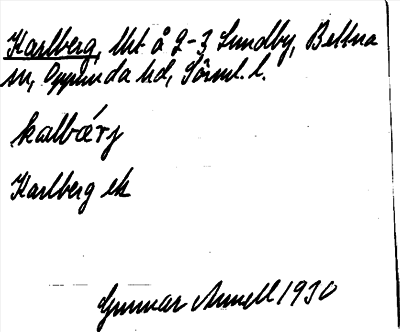 Karlberg, lht å 2-3 Sundby, Bettna
sn, Oppunda hd, Södml. l.
kalbærj
Karlberg ek
Gunnar Annell 1930